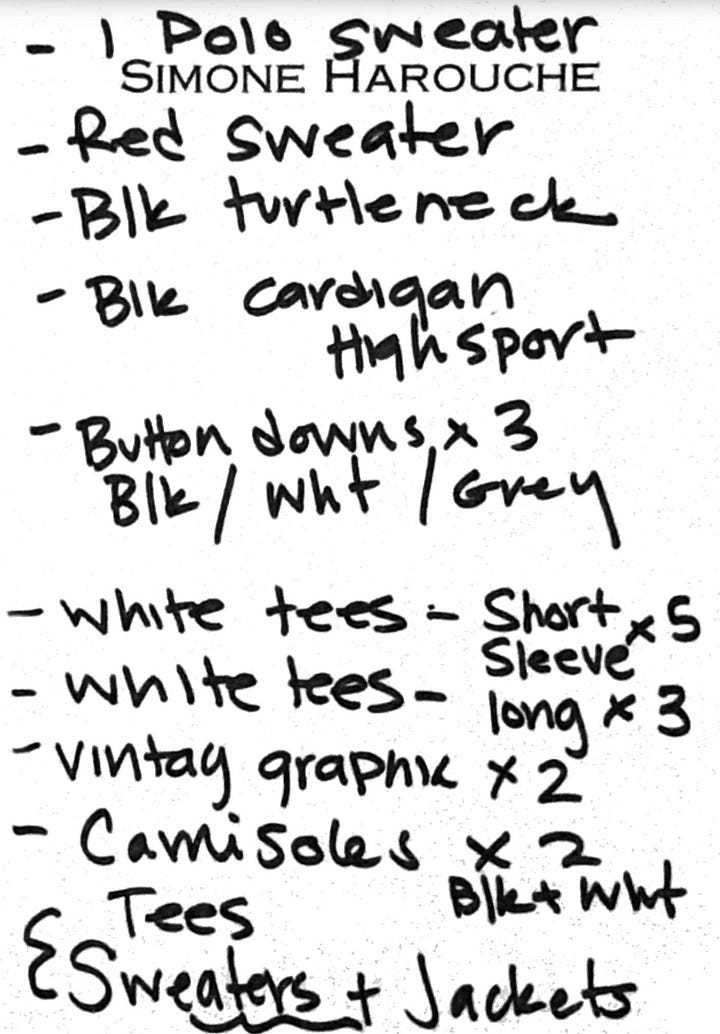 - 1 Polo sweater
SIMONE HAROUCHE
- Red sweater
- Blk turtleneck
- Blk cardigan
High sport
- Button downs x 3
Blk / Wht / Grey
- white tees - Short x 5
Sleeve
- white tees - long x 3
- vintag graphic x 2
- Camisoles x 2
Blk + Wht
{ Tees
Sweaters + Jackets